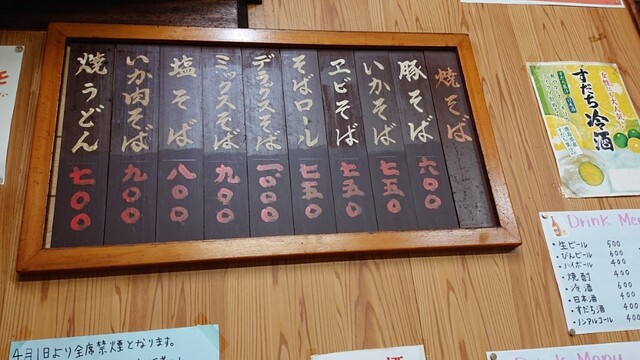 焼そば
豚そば 六〇〇
いかそば 七五〇
ヱビそば 七五〇
そばロール 七五〇
デラックスそば 一〇〇〇
ミックスそば 九〇〇
塩そば 八〇〇
いか肉そば 九〇〇
焼うどん 七〇〇
すだち冷酒
Drink Menu
・生ビール 500
・びんビール 600
・ハイボール 400
・焼酎 400
・冷酒 600
・日本酒 400
・すだち酒 400
・ノンアルコール 400
4月1日より全席禁煙となります。